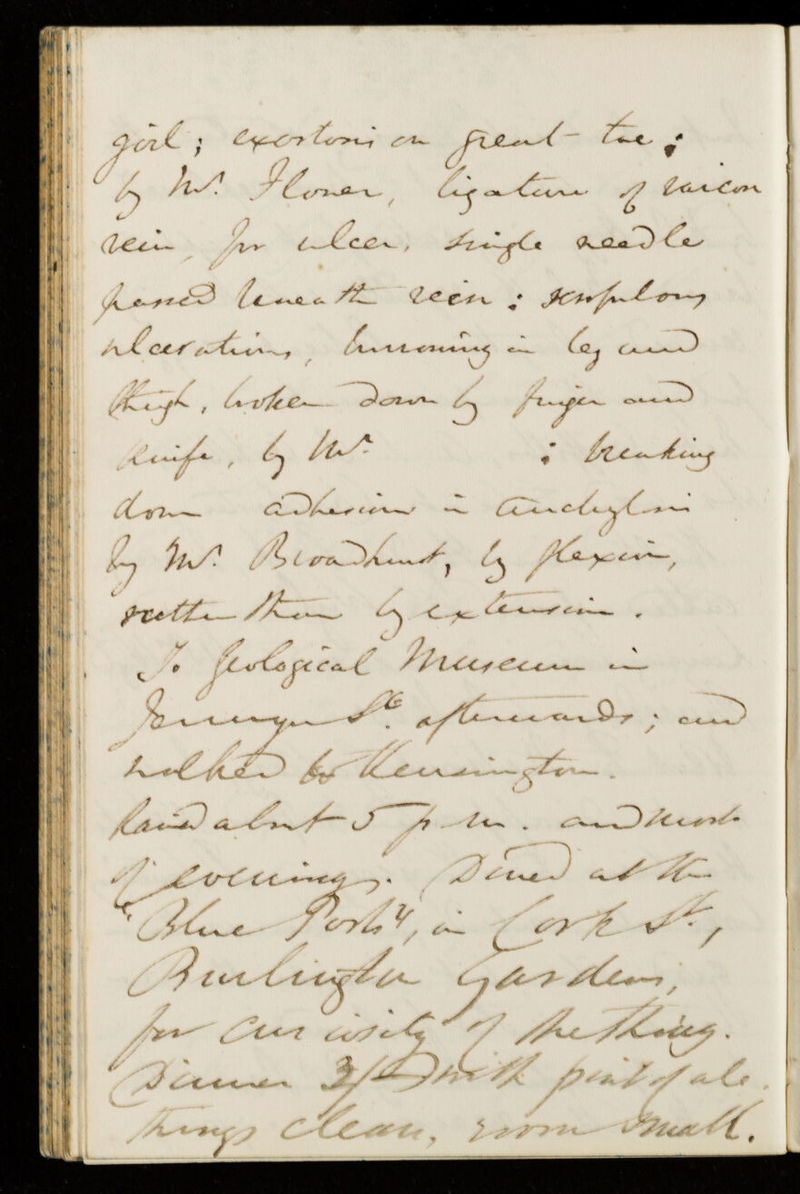 girl; exostosis on great toe;
by Mr. Flower, ligature of varicose
vein, for ulcer, single needle
passed beneath vein: scrofulous
ulcerations, burrowing in leg and
thigh, broken down by finger and
knife, by Mr. : breaking
down adhesions in anchylosis
by Mr. Broadhurst, by flexion,
rather than by extension.
To Geological Museum in
Jermyn St. afterwards; and
walked to Kensington.
Rained about 5 p.m. and most
of evening. Dined at the
"Blue Posts", in Cork St.,
Burlington Gardens,
for curiosity of the thing.
Dinner with pint of ale.
Things clean, room small.